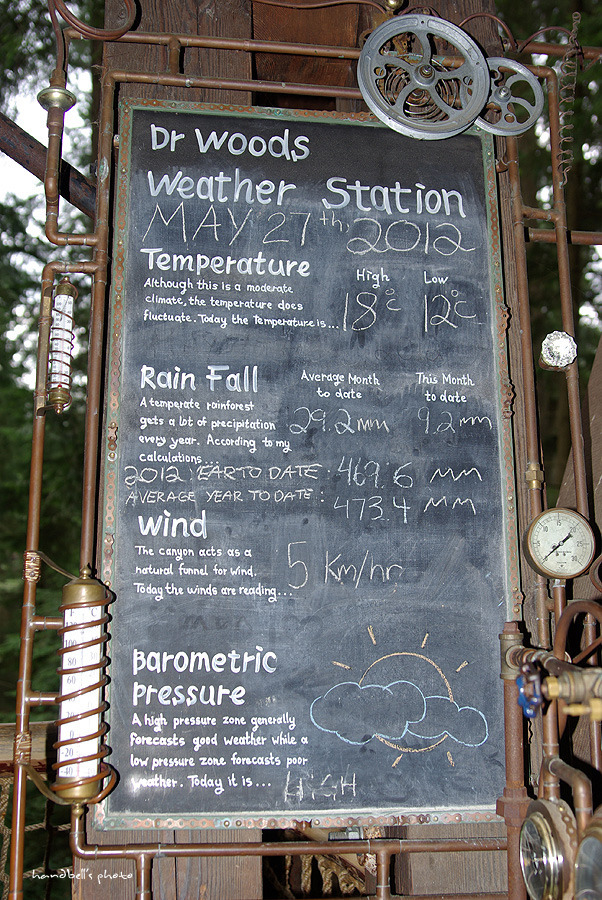 Dr Woods
Weather Station
MAY 27th, 2012
Temperature High Low
Although this is a moderate
climate, the temperature does
fluctuate. Today the Temperature is... 18°C 12°C
Rain Fall Average Month to date This Month to date
A temperate rainforest
gets a lot of precipitation 29.2mm 9.2mm
every year. According to my
calculations...
2012 YEAR TO DATE: 469.6 mm
AVERAGE YEAR TO DATE: 473.4 mm
Wind
The canyon acts as a
natural funnel for wind. 5 Km/hr
Today the winds are reading...
Barometric
pressure
A high pressure zone generally
forecasts good weather while a
low pressure zone forecasts poor
weather. Today it is...
handbell's photo